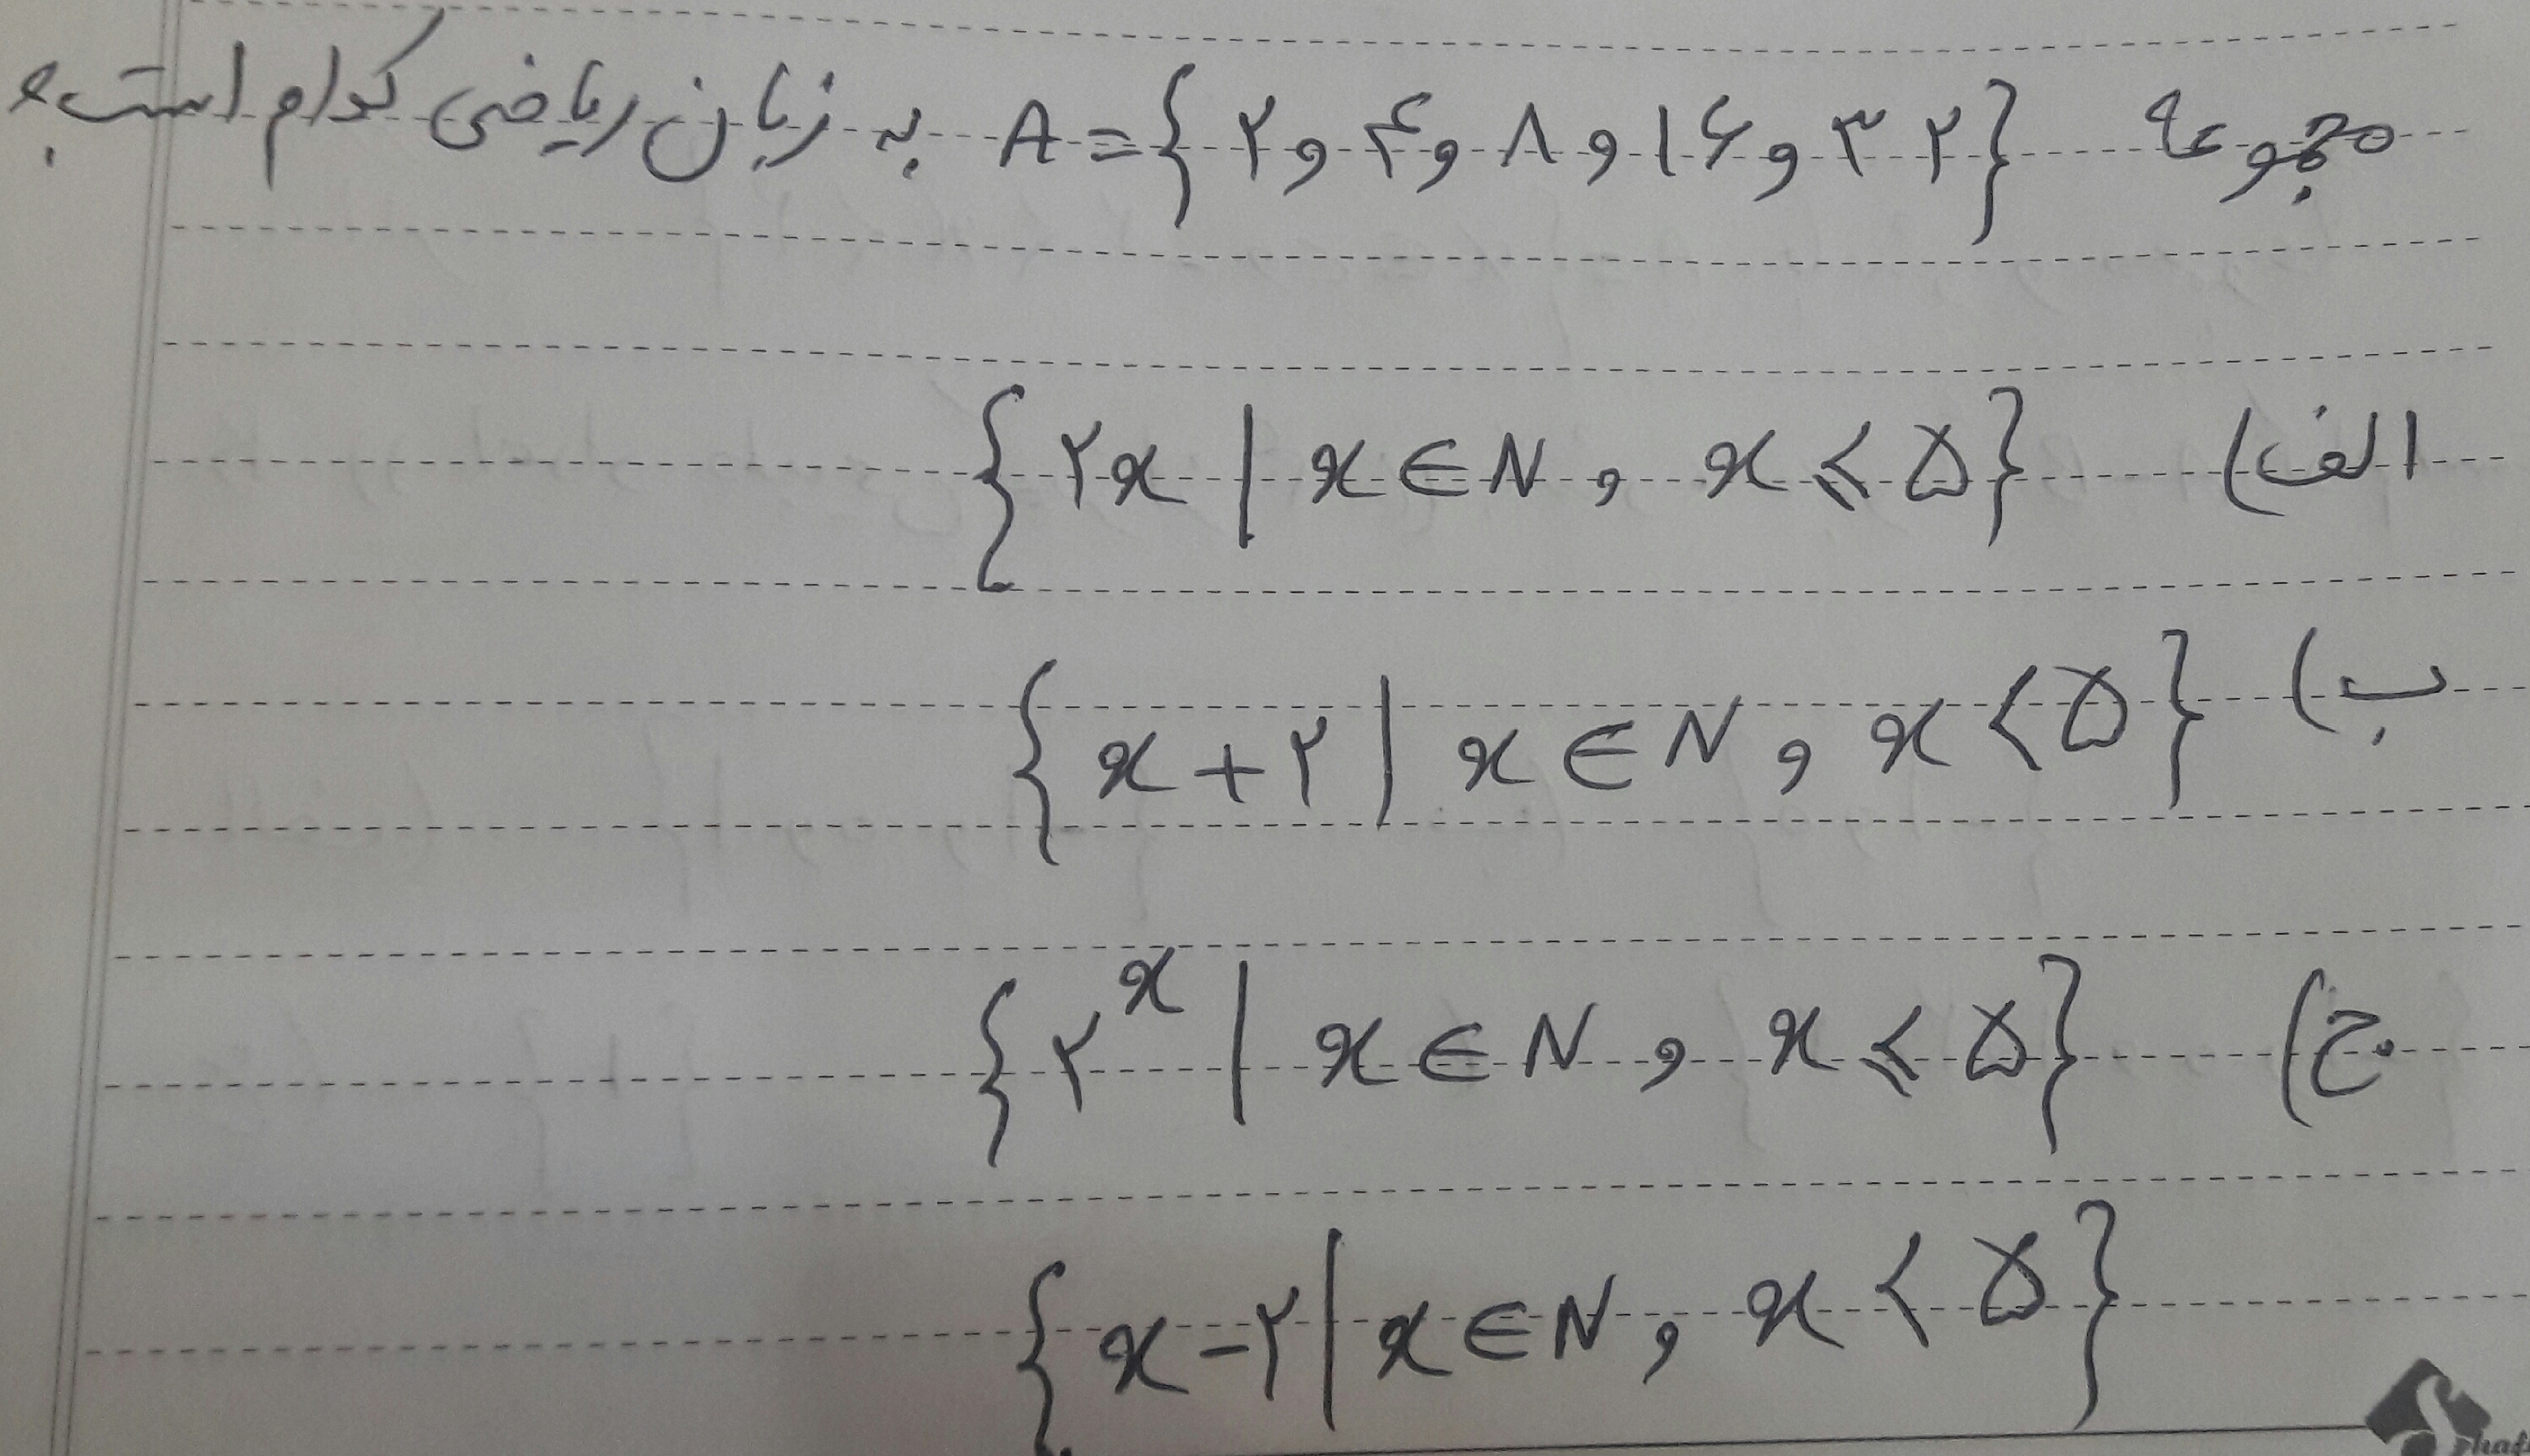 مجموعه A = {۲ و ۴ و ۸ و ۱۶ و ۳۲} به زبان ریاضی کدام است؟
الف) {۲x | x ∈ N , x ⩽ ۵}
ب) {x + ۲ | x ∈ N , x < ۵}
ج) {۲^x | x ∈ N , x ⩽ ۵}
{x - ۲ | x ∈ N , x < ۵}